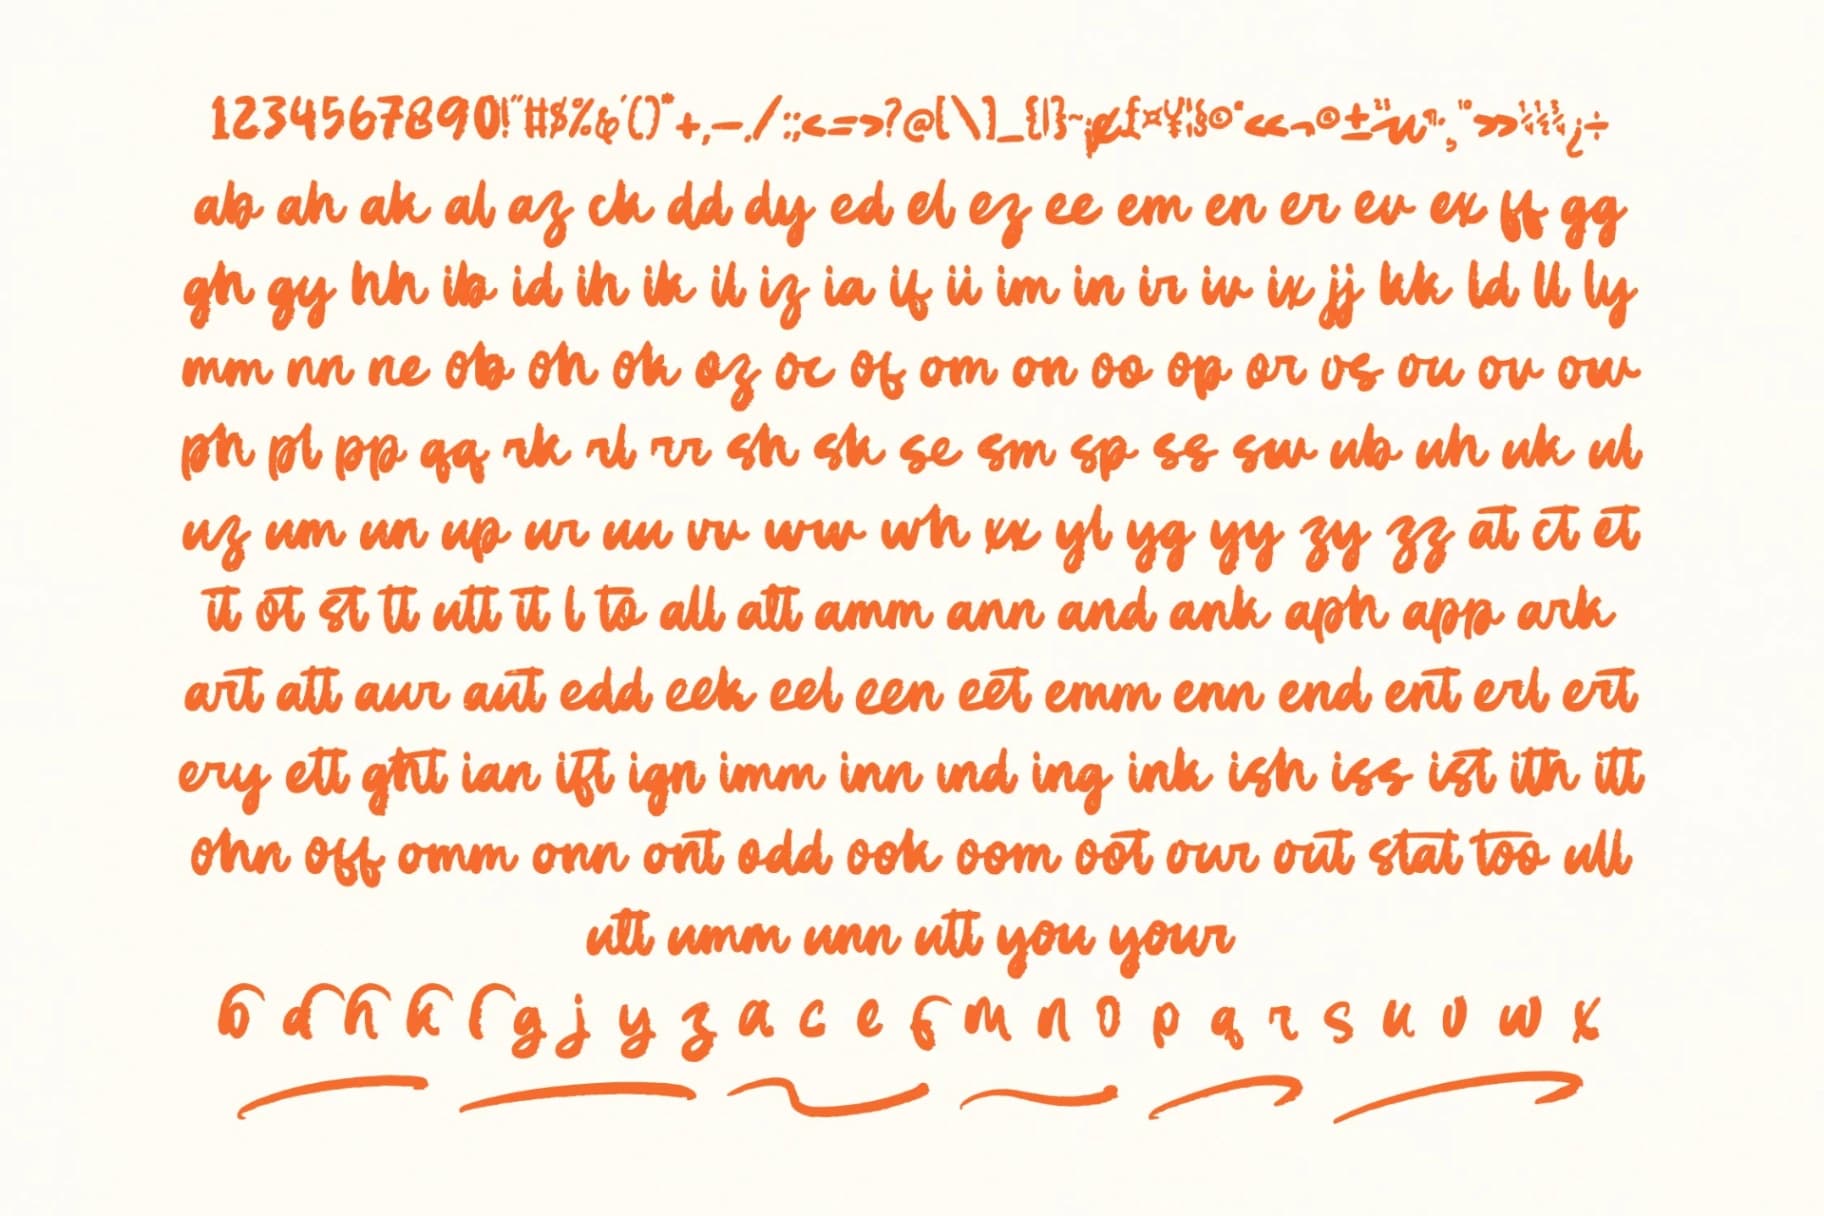 1234567890!"#$%&'()*+,-./:;<=>?@[\]_{|}~¡¢£¤¥¦§©ª«¬®±²³µ¶·¸¹º»¼½¾¿÷
ab ah ak al az ck dd dy ed el ez ee em en er ev ex ff gg
gh gy hh ib id ih ik il iz ia if ii im in ir iv ix jj kk ld ll ly
mm nn ne ob oh ok oz oc of om on oo op or os ou ov ow
ph pl pp qq rk rl rr sh sk se sm sp ss sw ub uh uk ul
uz um un up ur uu vv ww wh xx yl yg yy zy zz at ct et
it ot st tt utt it l to all att amm ann and ank aph app ark
art att aur aut edd eek eel een eet emm enn end ent erl ert
ery ett ght ian ift ign imm inn ind ing ink ish iss ist ith itt
ohn off omm onn ont odd ook oom oot our out stat too ull
utt umm unn utt you your
b d h k l g j y z a c e f m n o p q r s u v w x